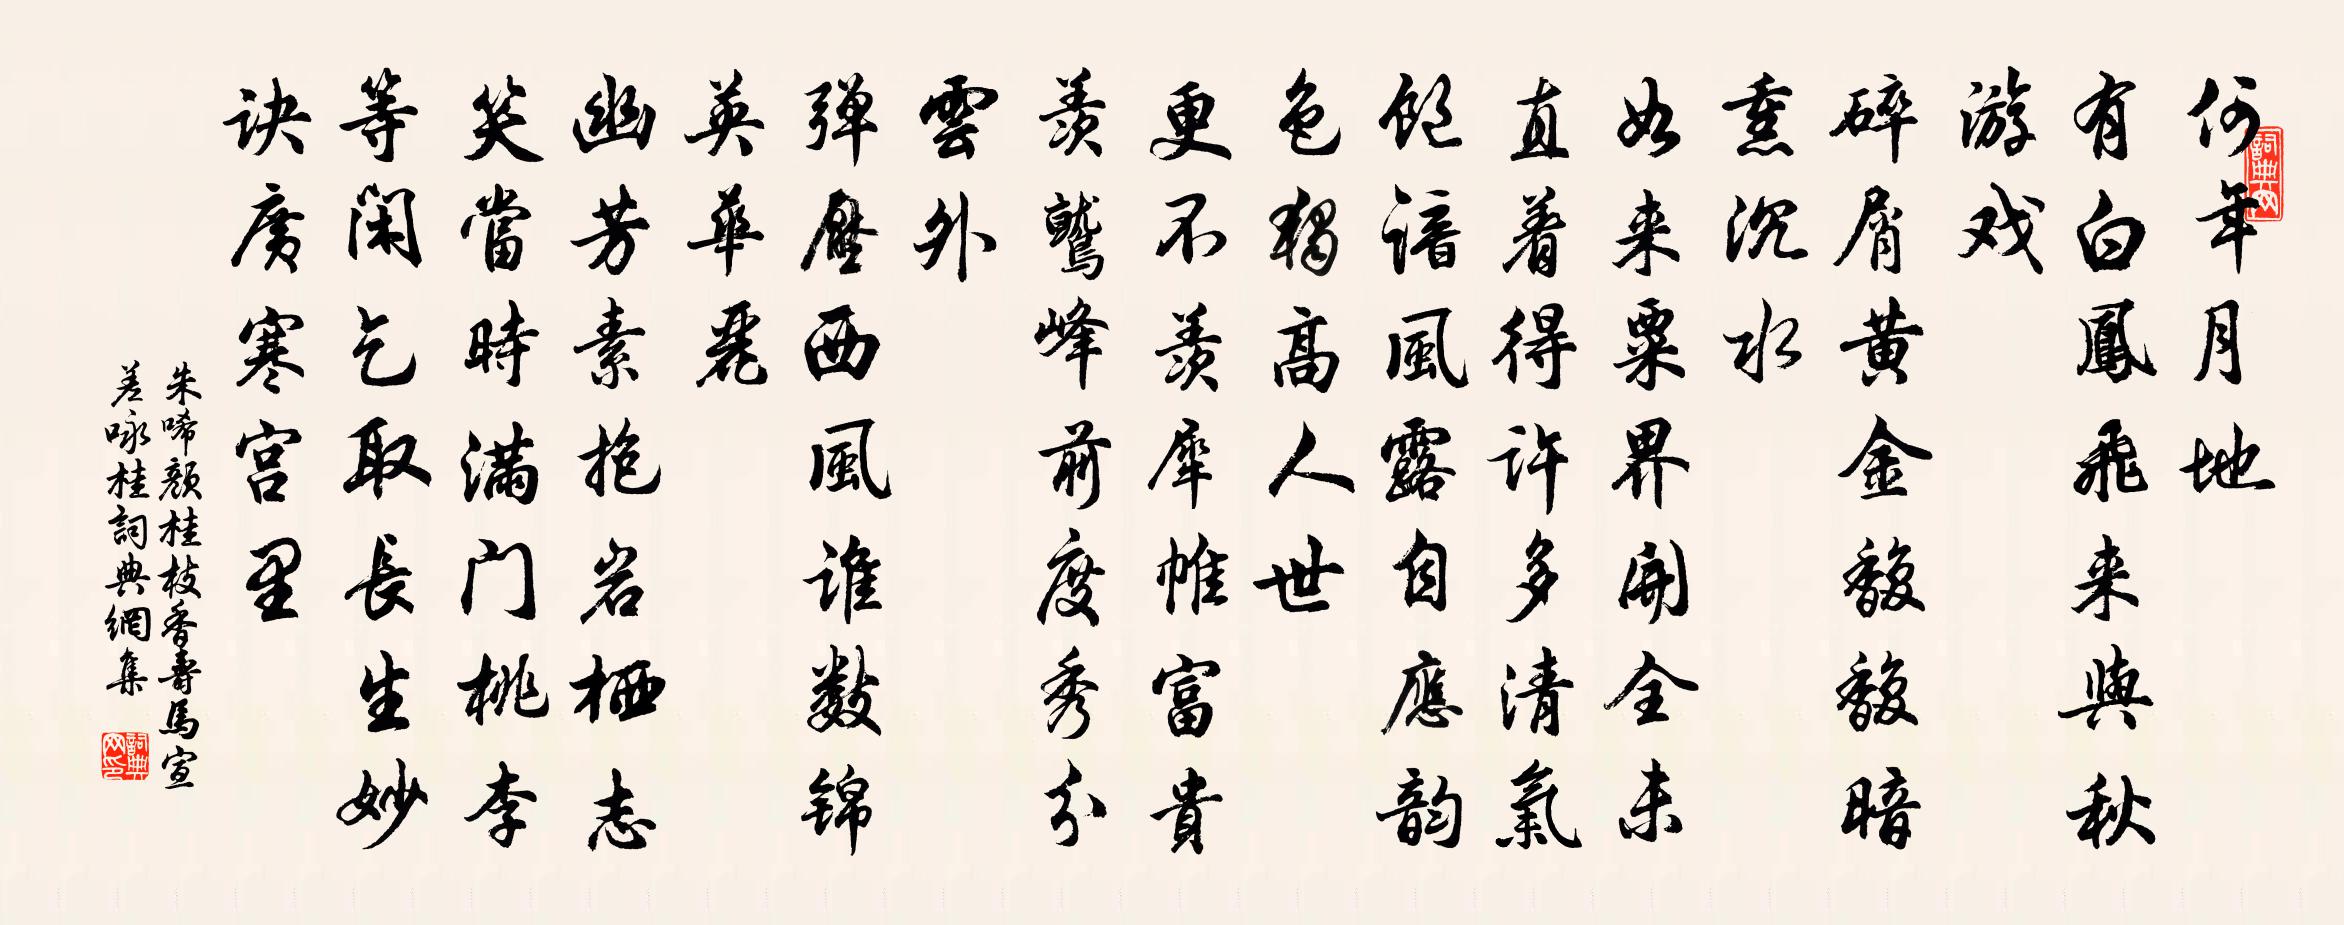 何年月地
有白鳳飛来與秋
游戏
碎屑黄金馥馥暗
熏沉水
如来粟界開全未
直着得许多清氣
饱谙風露自應韵
色独高人世
更不羡犀帷富貴
羡鹫峰前度秀分
雲外
弹壓西風谁数锦
英華麗
幽芳素抱岩栖志
笑當時满门桃李
等闲乞取長生妙
诀廣寒宫里
朱晞颜桂枝香壽馬宣
差咏桂詞典網集
詞典网
詞典网印